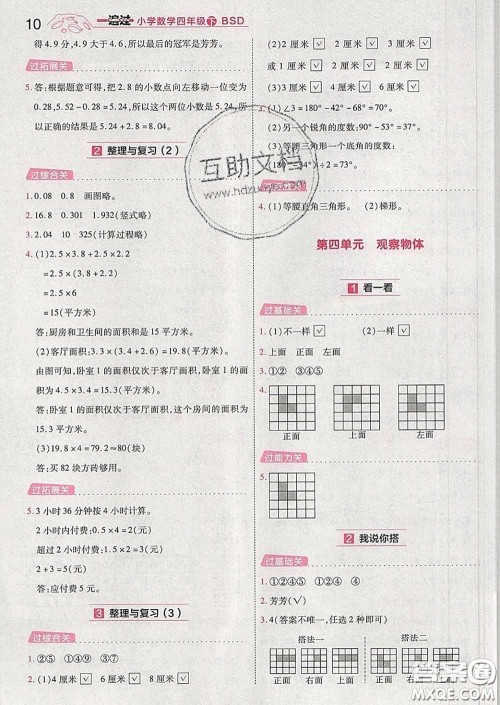 10 一遍过 小学数学四年级 下 BSD
得4.9分,4.9大于4.6,所以最后的冠军是芳芳。
过拓展关
5. 根据题意可得,把2.8的小数点向左移动一位变为
0.28,5.52-0.28=5.24,所以这个两位小数是5.24,所
以正确的结果是5.24+2.8=8.04。
2 整理与复习(2)
过综合关
1. 0.08 0.8 画图略。
2. 16.8 0.301 1.932(竖式略)
3. 2.04 10 325(计算过程略)
4. (1)2.5×3.8+2.5×2.2
=2.5×(3.8+2.2)
=2.5×6
=15(平方米)
答:厨房和卫生间的面积和是15平方米。
(2)客厅面积:3.3×(2.5+3.5)=19.8(平方米)
由图可知,卧室1的面积仅次于客厅面积,卧室1的
面积为4.5×3.4=15.3(平方米)。
答:卧室1的面积仅次于客厅面积,这个房间的面积为
15.3平方米。
(3)19.8÷(0.5×0.5)=79.2≈80(块)
答:买82块方砖够用。
过拓展关
5. 3小时36分钟按4小时计算。
2小时内付费:1×2=2(元)
超过2小时付费:1.5×2=3(元)
2+3=5(元)
答:应付费5元。
3 整理与复习(3)
过综合关
1. ②⑤ ①④⑨ ③⑦
2. (1)4厘米 6厘米 8厘米
(2)2厘米 3厘米 4厘米
或1厘米 2厘米
3. (1)∠3=180°-
(2)另一个锐角的度数:90°-
(3)等腰三角形一个底角的度数:
÷2=73°。
4. (1)等腰直角三角形。 (2)梯形。
第四单元 观察物体
1 看一看
过基础关
1. (1)不一样 (2)一样
2. 上面 正面 左面
3. ①② ③④⑤
4.
正面 上面 左面
过能力关
5.
2 我说你搭
过基础关
1. ①②④⑤ ①②④ ③⑤
2. 芳芳(
3. 4(答案不唯一,任选2种即可)
搭法一 搭法二
正面 右面 上面 正面 右面 上面
互助文档
www.hdzuoye.com
答案圈
MXQE.COM